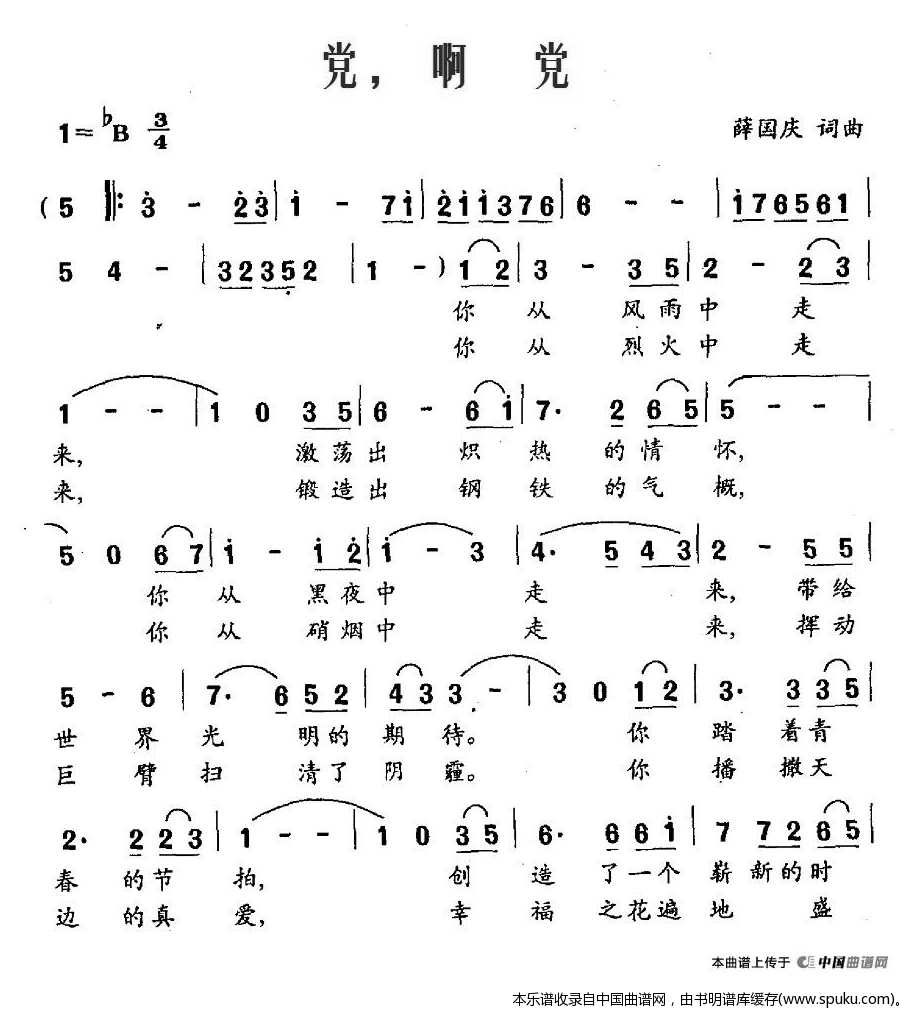 党，啊 党
1=♭B 3/4
薛国庆 词曲
(5 ‖: 3̇ - 2̇3̇ | 1̇ - 71̇ | 2̇1̇1̇376 | 6 - - | 1̇76561 |
5 4 - | 3235̣2 | 1 - ) 12 | 3 - 35 | 2 - 23 |
你 从 风雨中 走
你 从 烈火中 走
1 - - | 1 0 35 | 6 - 61̇ | 7· 2 65 | 5 - - |
来, 激荡出 炽 热 的情 怀,
来, 锻造出 钢 铁 的气 概,
5 0 67 | 1̇ - 1̇2̇ | 1̇ - 3 | 4· 5 43 | 2 - 55 |
你 从 黑夜中 走 来, 带给
你 从 硝烟中 走 来, 挥动
5 - 6 | 7· 6 52 | 433 3 - | 3 0 12 | 3· 3 35 |
世 界 光 明的 期 待。 你 踏 着青
巨 臂 扫 清了 阴 霾。 你 播 撒天
2· 2 23 | 1 - - | 1 0 35 | 6· 6 61̇ | 7 72 65 |
春 的节 拍, 创 造 了一个 崭 新的时
边 的真 爱, 幸 福 之花遍 地 盛
本曲谱上传于 中国曲谱网
本乐谱收录自中国曲谱网，由书明谱库缓存(www.spuku.com)。